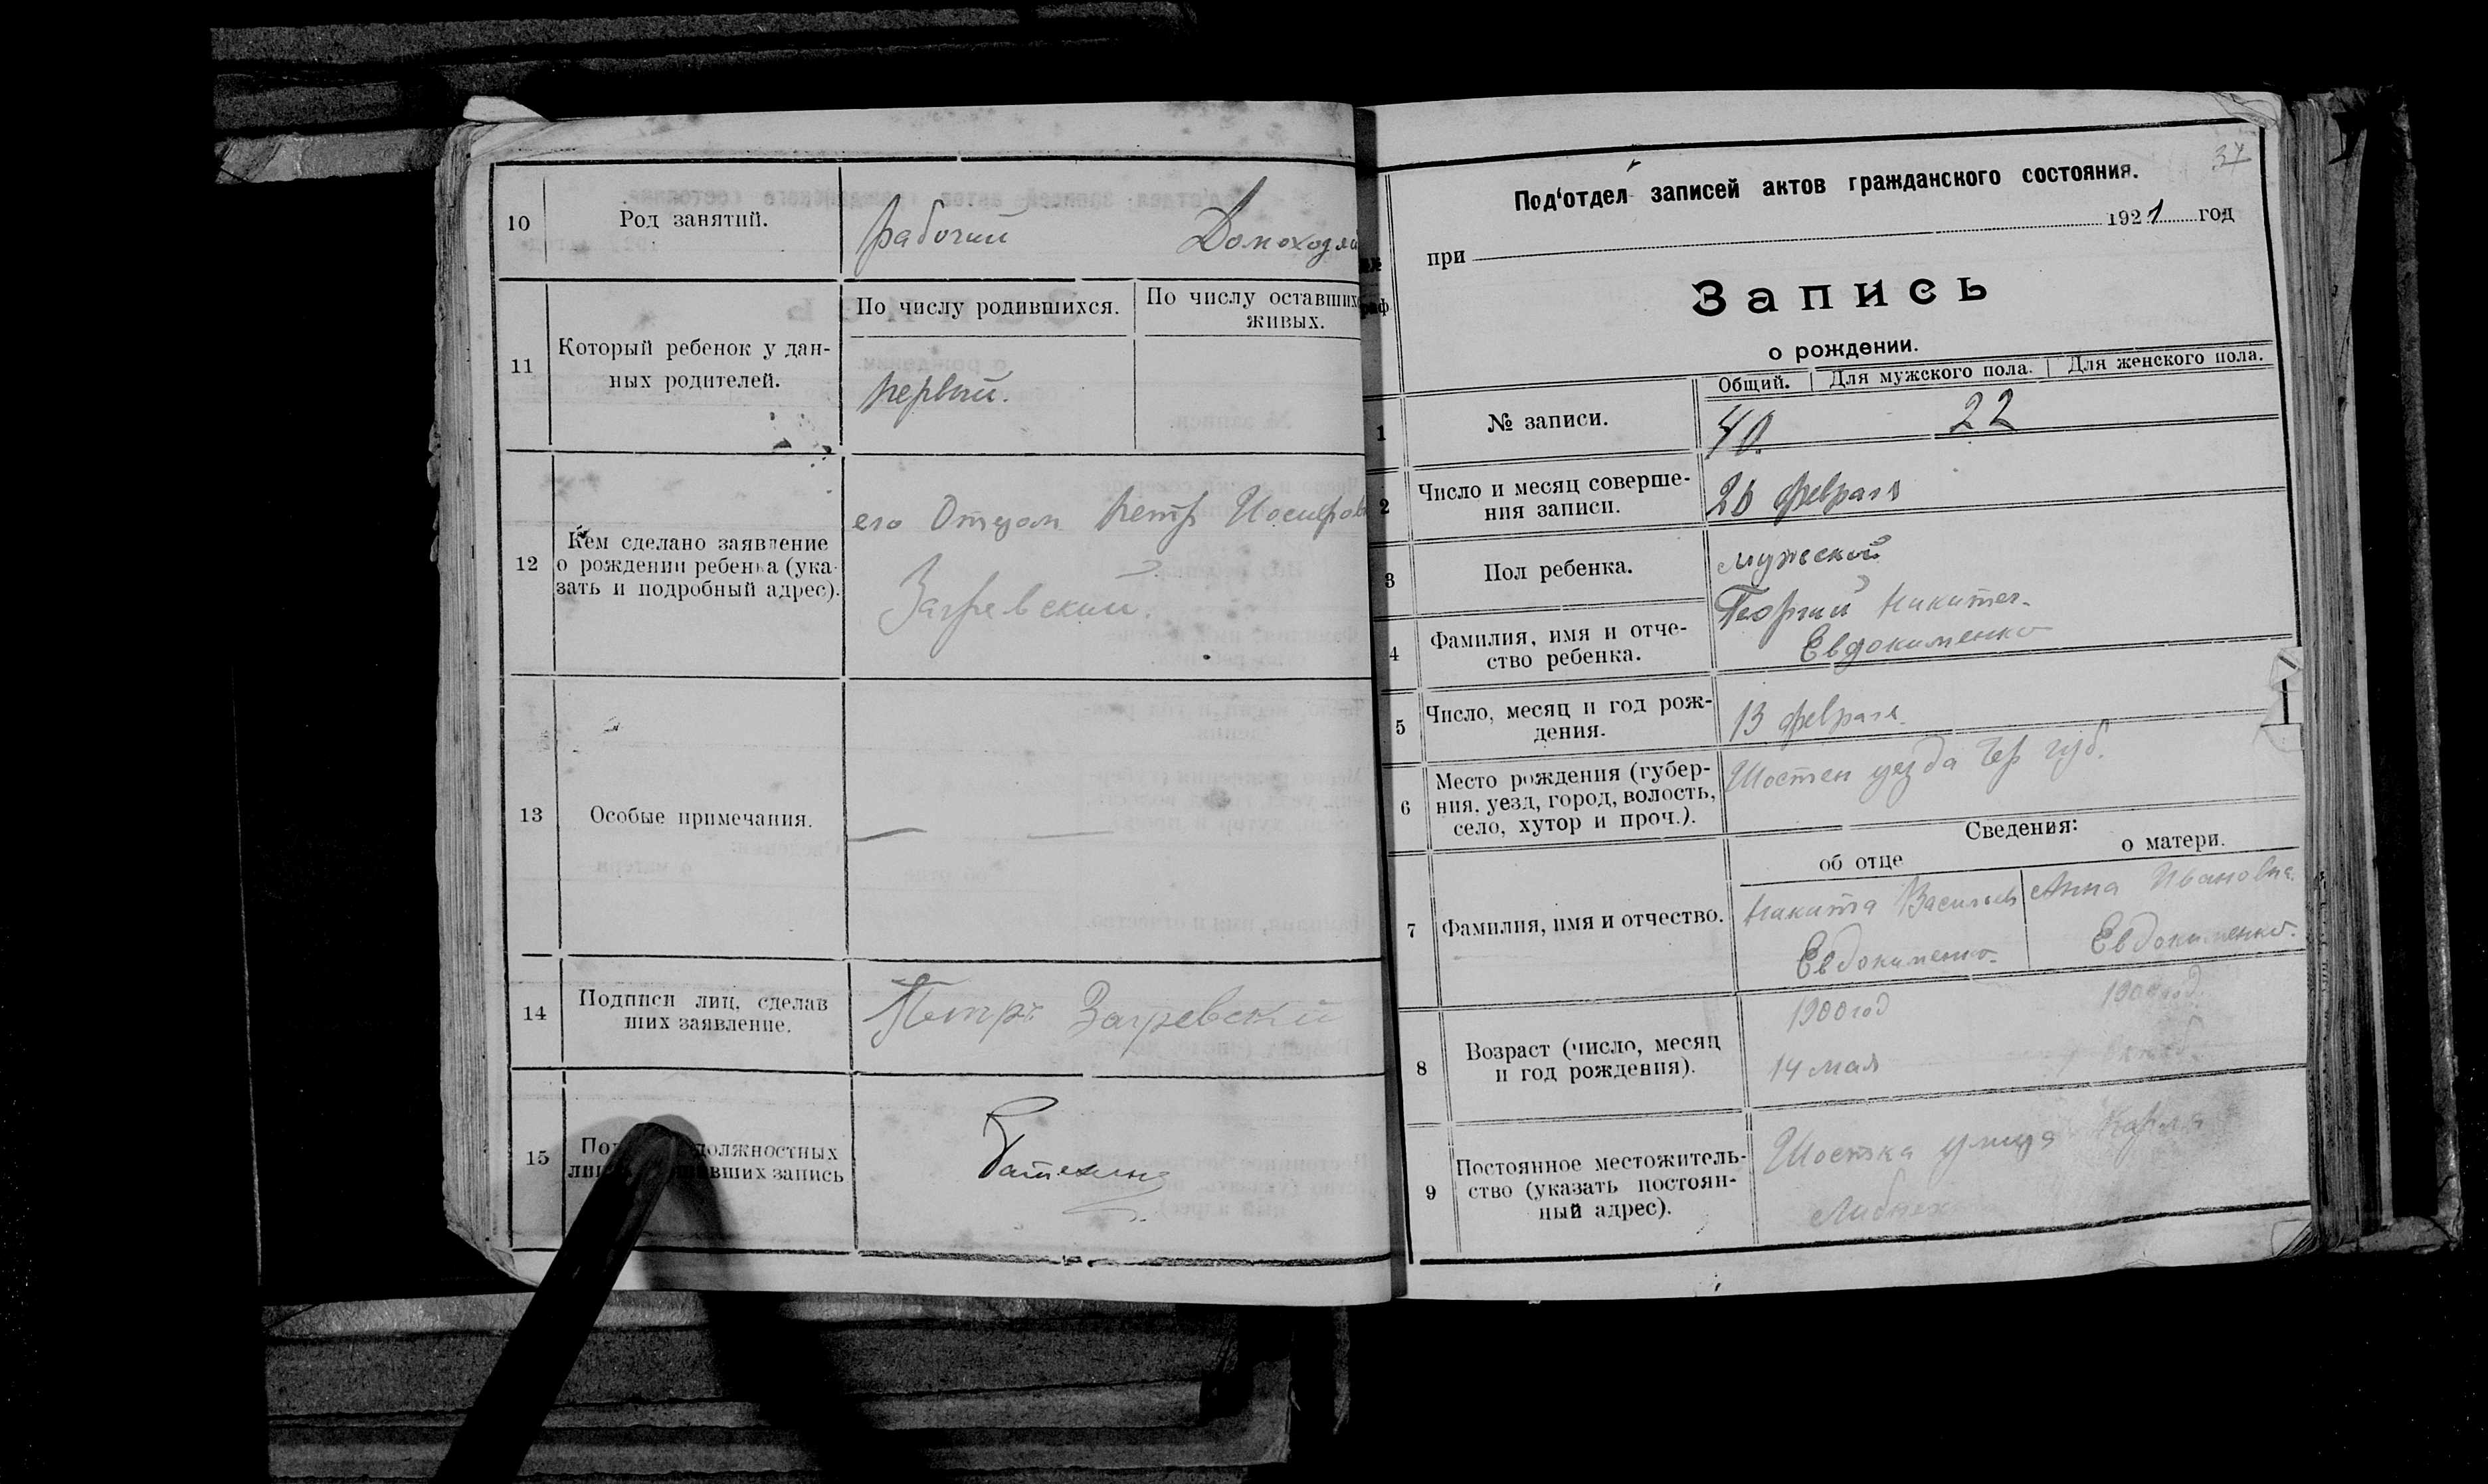 10 Род занятий. рабочий Домохозяй
11 Который ребенок у дан-
ных родителей.
По числу родившихся. По числу оставших
живых.
первый.
12 Кем сделано заявление
о рождении ребенка (ука-
зать и подробный адрес).
его Отцом Петр Иосифов
Загревский.
13 Особые примечания.
14 Подписи лиц, сделав
ших заявление.
Петръ Загревский
15 должностных
вших запись
37
Под'отдел записей актов гражданского состояния.
при 1921 год
Запись
о рождении.
Общий. Для мужского пола. Для женского пола.
1 № записи. 40. 22
2 Число и месяц соверше-
ния записи.
26 февраля
3 Пол ребенка. мужеский
4 Фамилия, имя и отче-
ство ребенка.
Георгий Никитич.
Евдокименко
5 Число, месяц и год рож-
дения.
13 февраля.
6 Место рождения (губер-
ния, уезд, город, волость,
село, хутор и проч.).
Шостен уезда Чер губ.
Сведения:
об отце о матери.
7 Фамилия, имя и отчество.
Никита Васильев Анна Ивановна.
Евдокименко. Евдокименко.
8 Возраст (число, месяц
и год рождения).
1900 год
14 мая
9 Постоянное местожитель-
ство (указать постоян-
ный адрес).
Шостка улица Карла